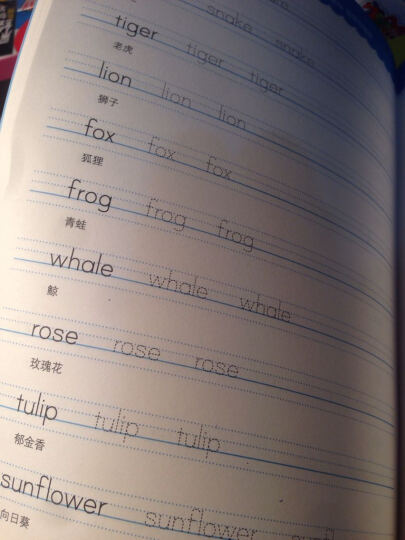 snake snake
tiger tiger tiger
老虎
lion lion lion
狮子
fox fox fox
狐狸
frog frog frog
青蛙
whale whale whale
鲸
rose rose rose
玫瑰花
tulip tulip tulip
郁金香
sunflower sunflower
向日葵